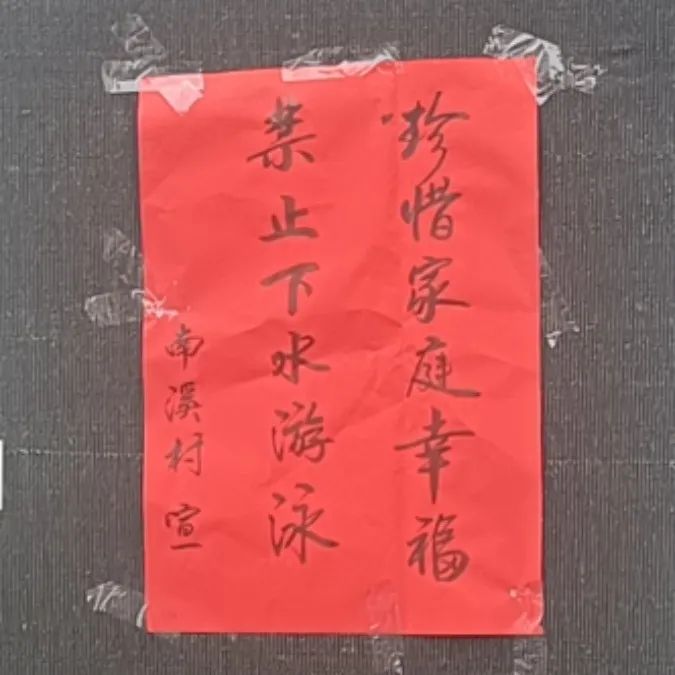 珍惜家庭幸福
禁止下水游泳
南溪村 宣